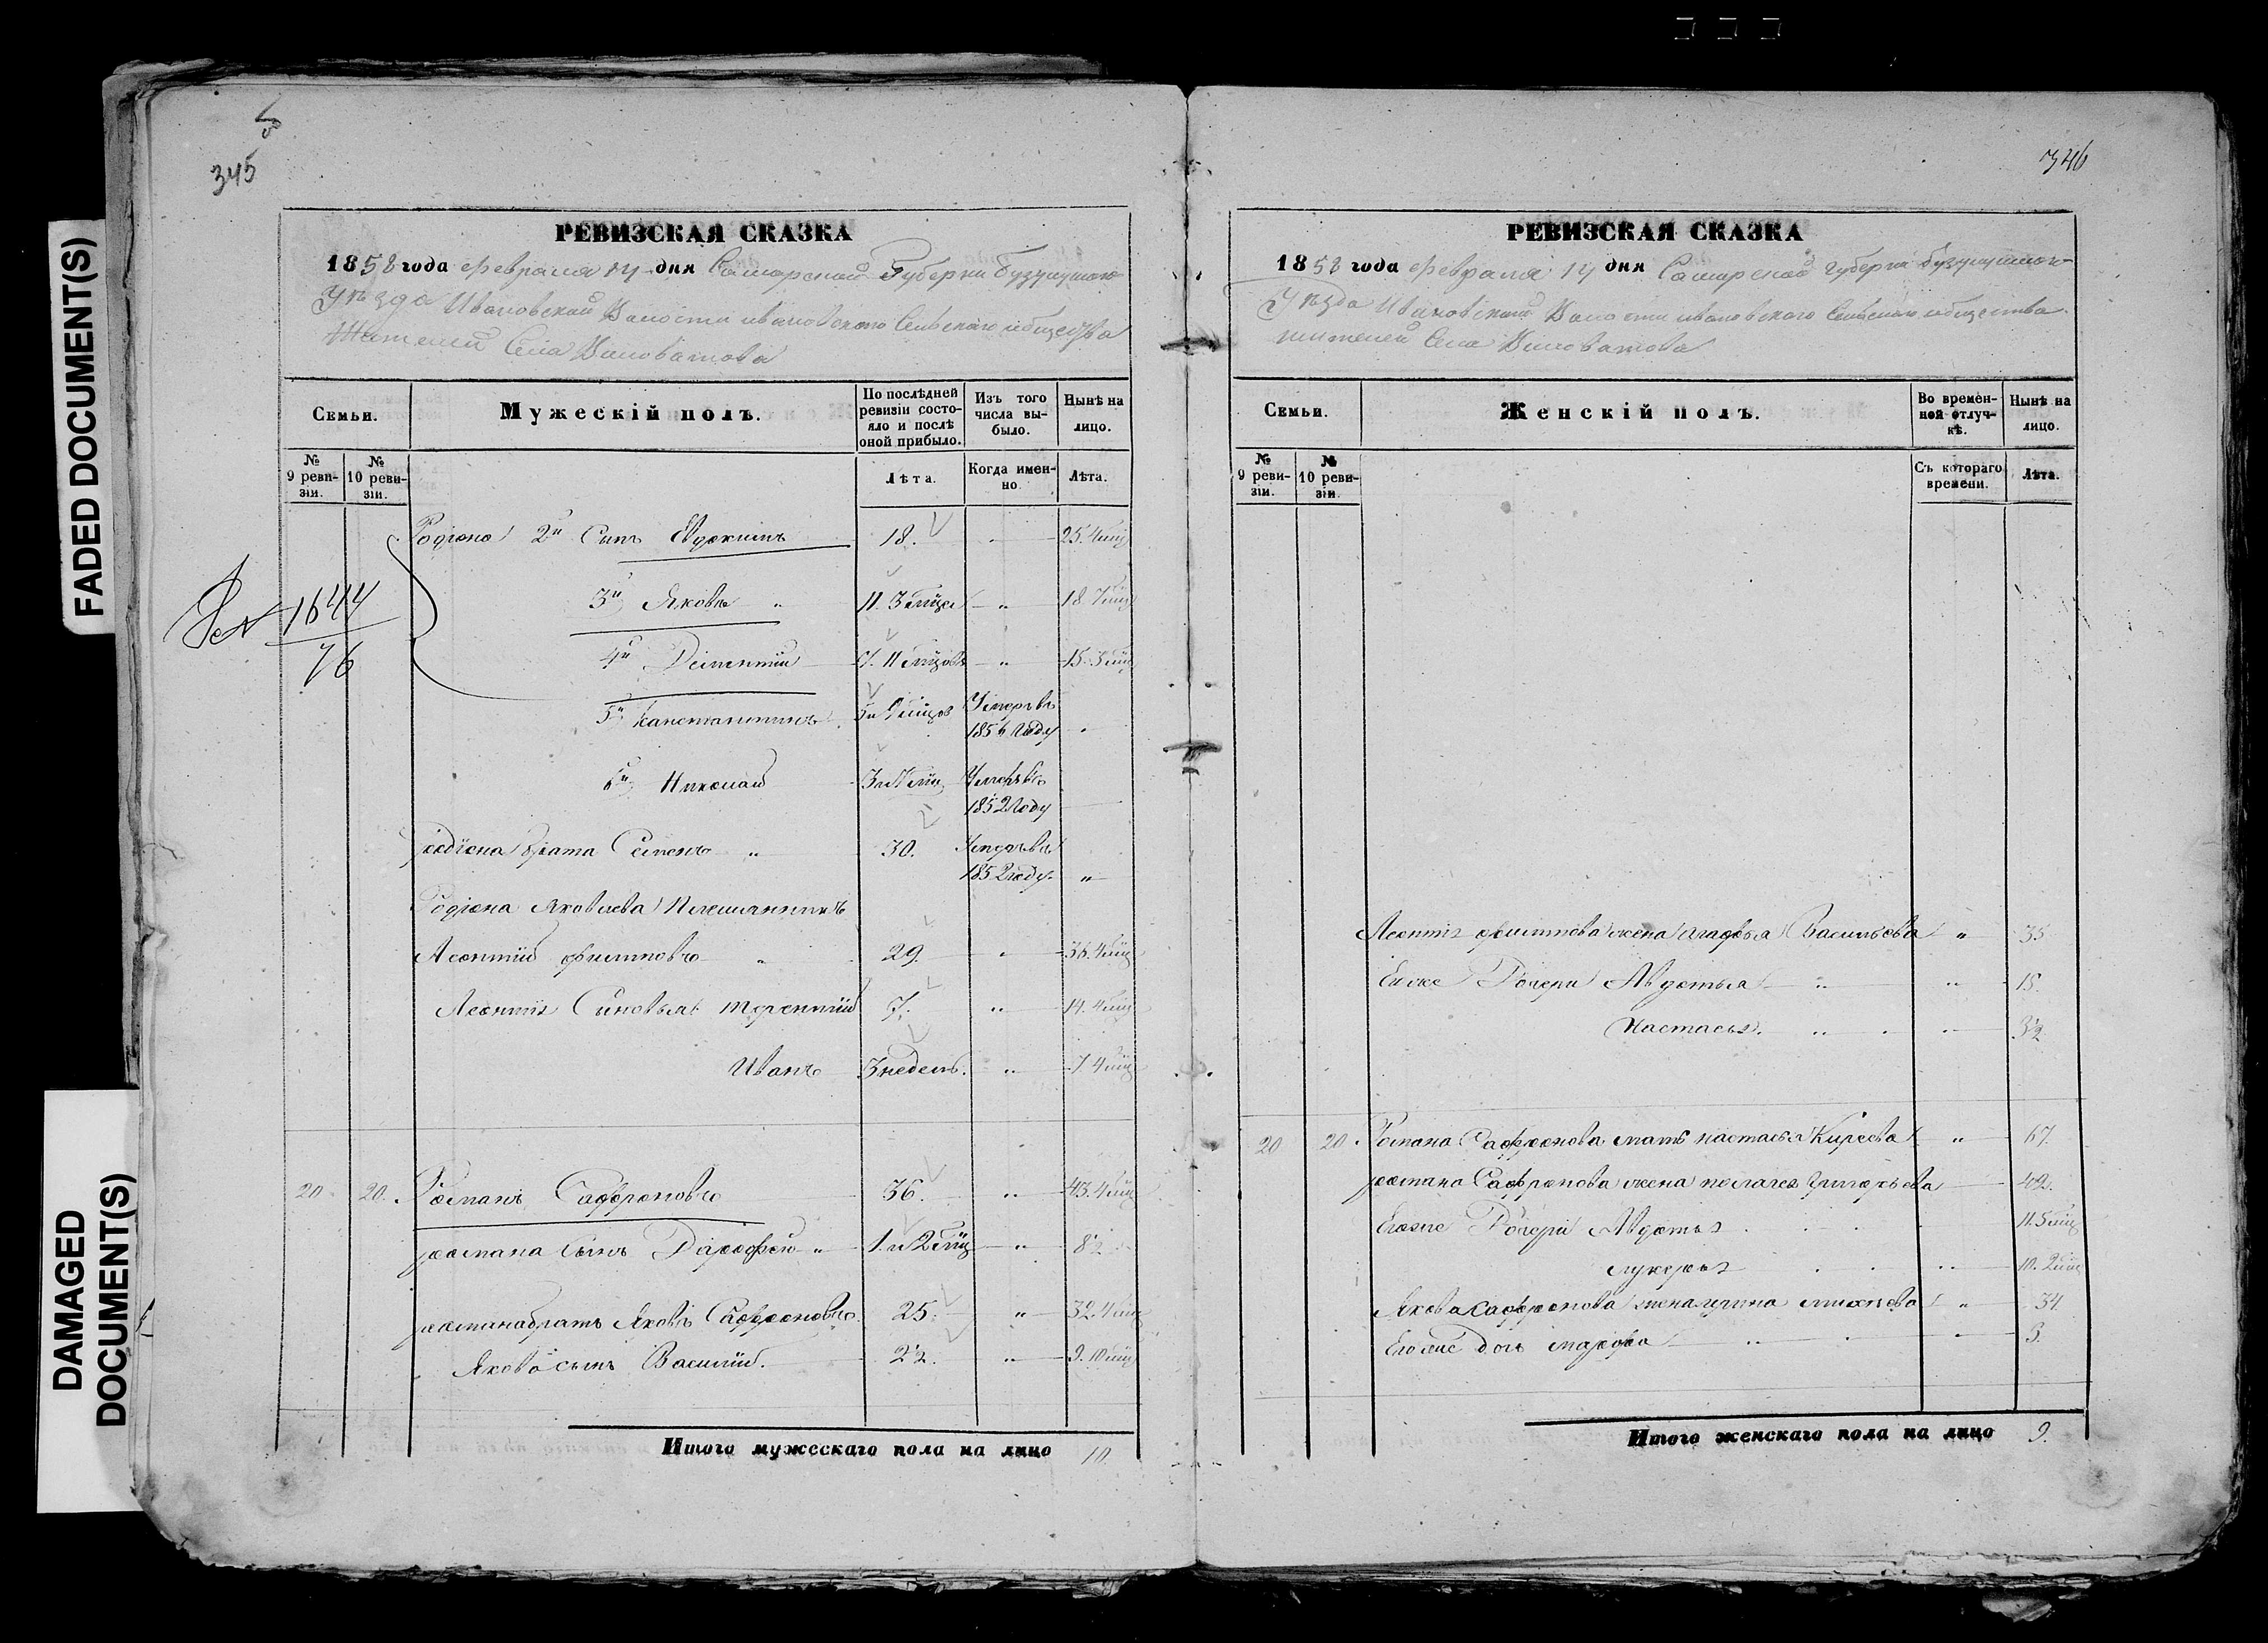 FADED DOCUMENT(S)
DAMAGED
DOCUMENT(S)
345
РЕВИЗСКАЯ СКАЗКА
1858 года февраля 14 дня Самарской Губерни Бузулукскаго
Уѣзда Ивановской Волости ивановского Сельскаго общества
Жителей Села Виловатова
Семьи.
Мужескій полъ.
По послѣдней ревизіи состояло и послѣ оной прибыло.
Изъ того числа выбыло.
Нынѣ на лицо.
№ 9 ревизіи.
№ 10 ревизіи.
Лѣта.
Когда именно
Лѣта.
Родіона 2й Сынъ Евдокимъ 18. 25. 4 мц
3й Яковъ " 11. 3 мцa " 18. 7 мц
4й Дементий 7. 11 мцовъ " 15. 3 мц
1644
76
5й Канстантинъ 5 и 9 мцов Умеръ въ
1856 году
6й Николай 3 и 7 мц Умеръ въ
1852 году
родіона брата Семенъ " 30. Умеръ въ
1852 году "
Родіона Яковлева Племянникъ
Леонтий филиповъ " 29. 36. 4 мц
Леонтия Сыновья Терентий 7. " 14. 4 мц
Иванъ 3 недель. " 7. 4 мц
20. 20. Романъ Сафроновъ 36. " 43. 4 мц
романа сынъ Дарофей " 1. и 2 мц " 8½
романа братъ Яковъ Сафроновъ 25. " 32. 4 мц
Якова сынъ Василий. 2½. " 9. 10 мц
Итого мужескаго пола на лицо 10.
346
РЕВИЗСКАЯ СКАЗКА
1858 года февраля 14 дня Самарской губерни бузулукскаго
Уѣзда Ивановской Волости ивановского Сельскаго общества
жителей Села Виловатова
Семьи.
Женскій полъ.
Во временной отлучкѣ.
Нынѣ на лицо.
№ 9 ревизіи.
№ 10 ревизіи.
Съ котораго времени.
Лѣта.
Леонтия филипова жена агафья Васильева " 35
Ево же Дочери Авдотья " " 15.
Настасья. " " 3½
20 20. Романа Сафронова мать настасья Киреева " 67.
романа Сафронова жена пелагея григорьева 42.
Евоже Дочери Авдотья 11. 5 мц
лукерья " 10. 2 мц
Якова сафронова жена ирина 34.
Евоже дочь марфа " " 3.
Итого женскаго пола на лицо 9.